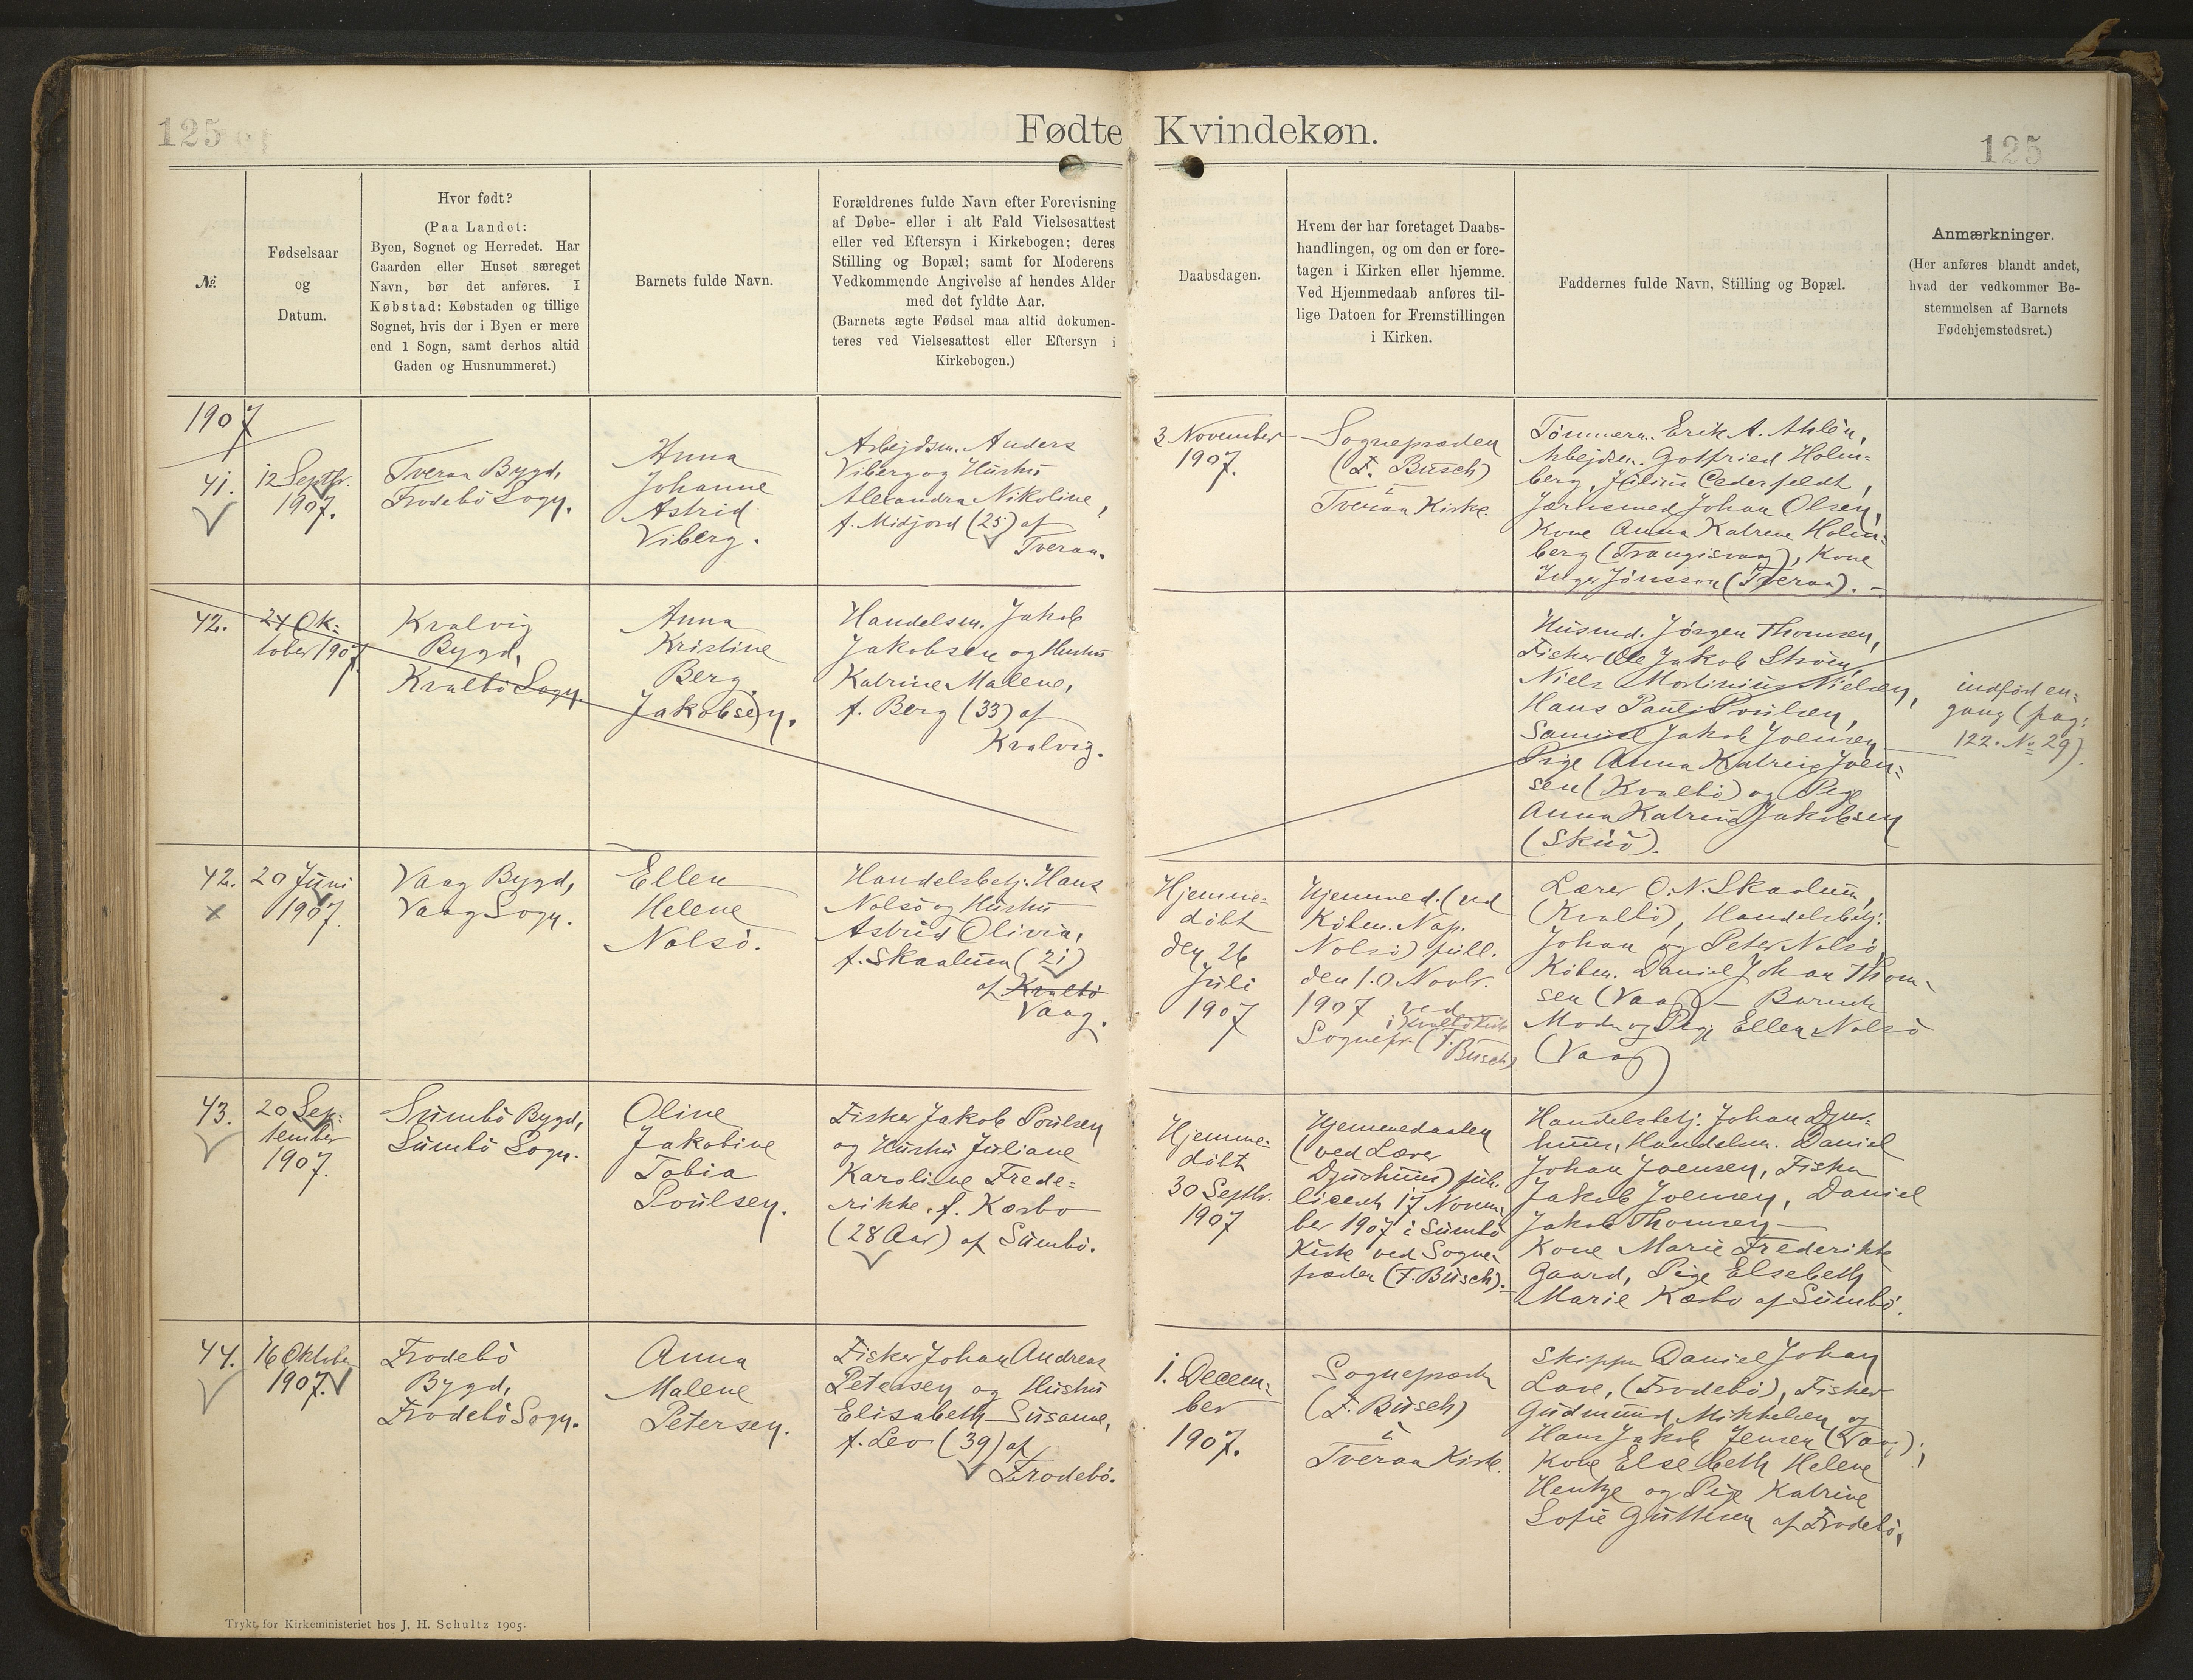 125
Fødte Kvindekøn.
125
№.
Fødselsaar
og
Datum.
Hvor født?
(Paa Landet:
Byen, Sognet og Herredet. Har
Gaarden eller Huset særeget
Navn, bør det anføres. I
Købstad: Købstaden og tillige
Sognet, hvis der i Byen er mere
end 1 Sogn, samt derhos altid
Gaden og Husnummeret.)
Barnets fulde Navn.
Forældrenes fulde Navn efter Forevisning
af Døbe- eller i alt Fald Vielsesattest
eller ved Eftersyn i Kirkebogen; deres
Stilling og Bopæl; samt for Moderens
Vedkommende Angivelse af hendes Alder
med det fyldte Aar.
(Barnets ægte Fødsel maa altid dokumen-
teres ved Vielsesattest eller Eftersyn i
Kirkebogen.)
Daabsdagen.
Hvem der har foretaget Daabs-
handlingen, og om den er fore-
tagen i Kirken eller hjemme.
Ved Hjemmedaab anføres til-
lige Datoen for Fremstillingen
i Kirken.
Faddernes fulde Navn, Stilling og Bopæl.
Anmærkninger.
(Her anføres blandt andet,
hvad der vedkommer Be-
stemmelsen af Barnets
Fødehjemstedsret.)
1907
41.
12 Septbr.
1907.
Tveraa Bygd,
Frodebö Sogn.
Anna
Johanne
Astrid
Viberg.
Arbejdsm. Anders
Viberg og Hustru
Alexandra Nikoline,
f. Midjord (25) af
Tveraa.
3 November
1907.
Sognepræsten
(F. Busch)
i
Tveraa Kirke.
Tömmerm. Erik A. Ahlén,
Arbejdsm. Gotfried Holm-
berg, Julius Cederfeldt,
Jernsmed Johan Olsen,
Kone Anna Katrine Holm-
berg (Trangisvaag), Kone
Inger Jönsson (Tveraa). –
42.
24 Ok-
tober 1907
Kvalvig
Bygd,
Kvalbö Sogn
Anna
Kristine
Berg
Jakobsen.
Handelsm. Jakob
Jakobsen og Hustru
Katrine Malene,
f. Berg (33) af
Kvalvig.
Husmd. Jörgen Thomsen,
Fisker Ole Jakob Ström,
Niels Mortinius Nielsen,
Hans Pauli Poulsen,
Samuel Jakob Joensen
Pige Anna Katrine Joen-
sen (Kvalbö) og Pige
Anna Katrine Jakobsen
(Skuö).
indfört en-
gang (pag:
122. № 29).
42.
20 Juni
1907.
Vaag Bygd,
Vaag Sogn.
Ellen
Helene
Nolsö.
Handelsbetj. Hans
Nolsö og Hustru
Astrid Olivia,
f. Skaalum (21)
af Kvalbö
Vaag.
Hjemme-
döbt
den 26
Juli
1907
Hjemmed. (ved
Köbm. Nap.
Nolsö) publ.
den 10 Novbr.
1907 ved
i Kvalbö Kirke
Sognepr. (F.
Busch)
Lærer O. N. Skaalum,
(Kvalbö), Handelsbetj.
Johan og Peter Nolsö,
Köbm. Daniel Johan Thom-
sen (Vaag) – Barnets
Moder og Pige Ellen Nolsö
(Vaag)
43.
20 Sep-
tember
1907.
Sumbö Bygd,
Sumbö Sogn.
Oline
Jakobine
Tobia
Poulsen.
Fisker Jakob Poulsen
og Hustru Juliane
Karoline Frede-
rikke, f. Kærbo
(28 Aar) af Sumbö.
Hjemme-
döbt
30 Septbr.
1907
Hjemmedaaben
(ved Lærer
Djurhuus) pub-
liceret 17 Novem-
ber 1907 i Sumbö
Kirke ved Sogne-
præsten (F. Busch).
Handelsbetj. Johan Djur-
huus, Handelsm. Daniel
Johan Joensen, Fisker
Jakob Joensen, Daniel
Jakob Thomsen –
Kone Marie Frederikke
Gaard, Pige Elsebeth
Marie Kærbo af Sumbö.
44.
16 Oktober
1907.
Frodebö
Bygd,
Frodebö Sogn.
Anna
Malene
Petersen.
Fisker Johan Andreas
Petersen og Hustru
Elisabeth Susanne,
f. Leo (39) af
Frodebö.
1. Decem-
ber
1907.
Sognepræsten
(F. Busch)
i
Tveraa Kirke.
Skipper Daniel Johan
(Frodebö), Fisker
Gudmund Mikkelsen og
Hans Jakob Jensen
Kone Elsebeth Helene
Hentze og Pige Katrine
Sofie Guttesen af Frodebö.
Trykt for Kirkeministeriet hos J. H. Schultz 1905.